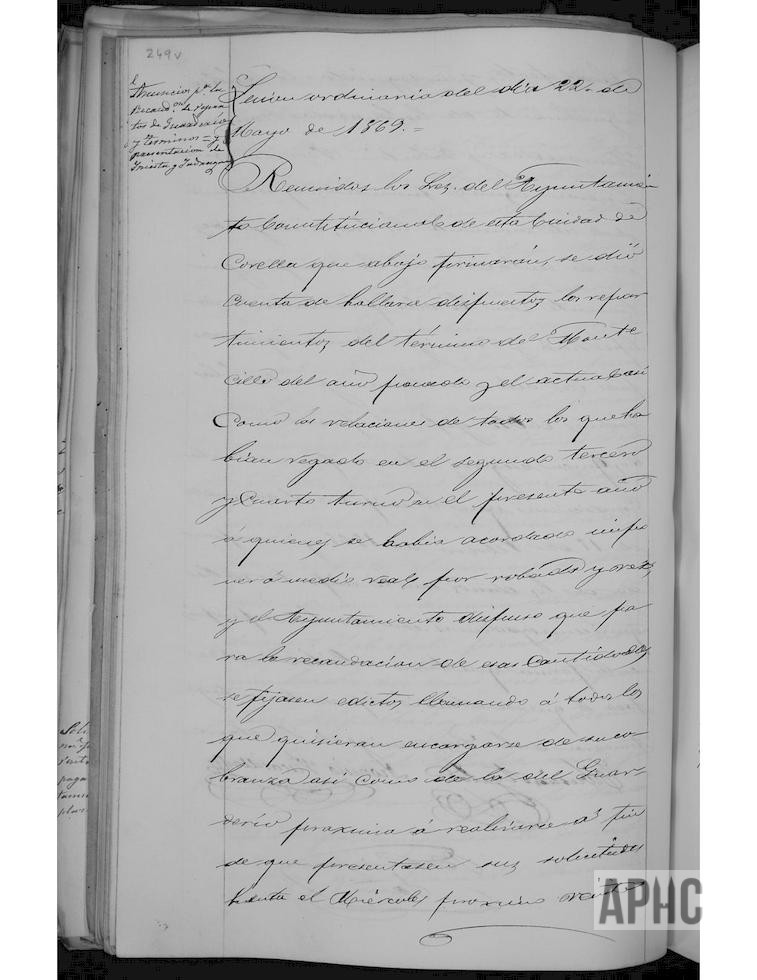 249v
Anuncios pª la
Recaud.on de repar
tos de Guarderio
y terminos = y
presentacion de
Sesion ordinaria del dia 22 de
Mayo de 1869.=
Reunidos los Sres. del Ayuntamien
to Constitucional de esta Ciudad de
Corella que abajo firmarán, se dió
cuenta de hallarse dispuestos los repar
timientos del término del Monte
cillo del año pasado y el actual asi
como las relaciones de todos los que ha
bian regado en el segundo tercero
y cuarto turno en el presente año
á quienes se habia acordado impo
ner á medio real por robada y vez,
y el Ayuntamiento dispuso que pa
ra la recaudacion de esas cantidades
se fijasen edictos llamando á todos los
que quisieran encargarse de su co
branza asi como de la del Guar-
derio proxima á realizarse á fin
de que presentasen sus solicitudes
hasta el Miércoles proximo veinte
Soli
paga
tami
APHC